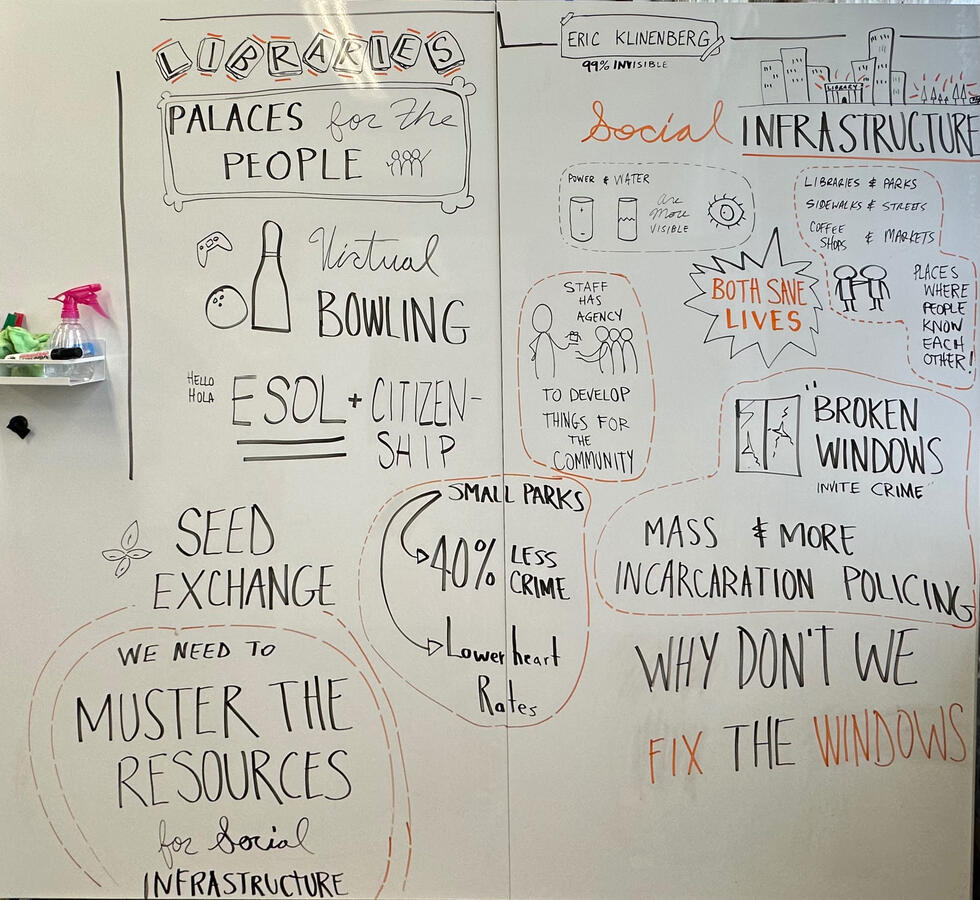 LIBRARIES
PALACES for The
PEOPLE
Virtual
BOWLING
HELLO
HOLA
ESOL + CITIZEN-
SHIP
SEED
EXCHANGE
WE NEED TO
MUSTER THE
RESOURCES
for Social
INFRASTRUCTURE
ERIC KLINENBERG
99% INVISIBLE
LIBRARY
Social INFRASTRUCTURE
POWER & WATER
are
More
VISIBLE
LIBRARIES & PARKS
SIDEWALKS & STREETS
COFFEE
SHOPS & MARKETS
PLACES
WHERE
PEOPLE
KNOW
EACH
OTHER!
BOTH SAVE
LIVES
STAFF
HAS
AGENCY
TO DEVELOP
THINGS FOR
THE
COMMUNITY
SMALL PARKS
40% LESS
CRIME
Lower heart
Rates
"BROKEN
WINDOWS
INVITE CRIME"
MASS & MORE
INCARCARATION POLICING
WHY DON'T WE
FIX THE WINDOWS